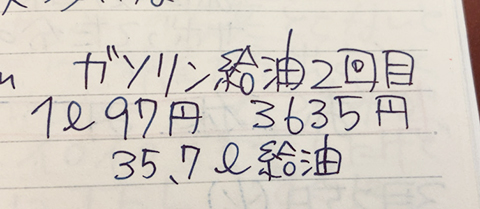 ガソリン給油2回目
1ℓ97円 3635円
35.7ℓ給油